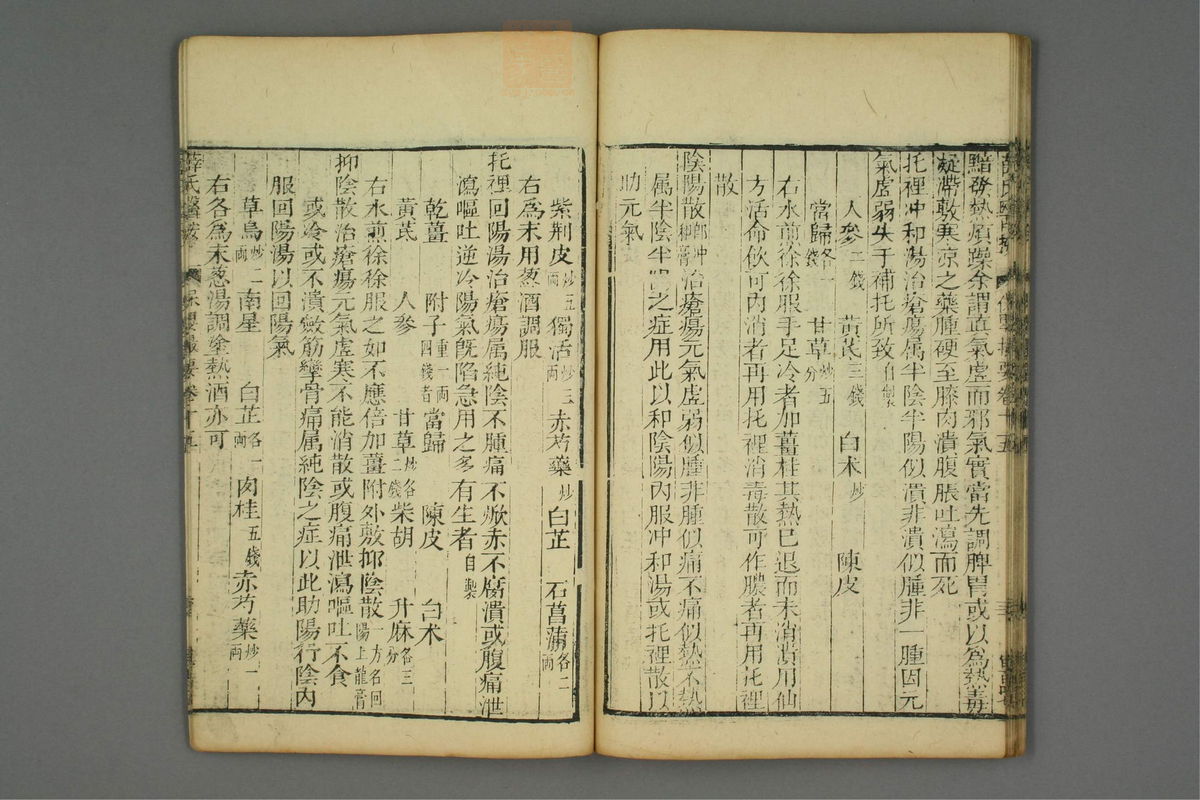 黯發熱煩躁余謂直氣虛而邪氣實當先調脾胃或以爲熱毒
凝滯敷寒涼之藥腫硬至膝肉潰腹脹吐瀉而死
托裡冲和湯治瘡瘍属半陰半陽似潰非潰似腫非一腫因元
氣虛弱失于補托所致自製
人參二錢 黄芪三錢 白术炒 陳皮
當歸各一錢 甘草炒五分
右水煎徐徐服手足冷者加薑桂其熱已退而未消潰用仙
方活命飲可内消者再用托裡消毒散可作膿者再用托裡
散
陰陽散即冲和膏治瘡瘍元氣虛弱似腫非腫似痛不痛似熱不熱
属半陰半陽之症用此以和陰陽内服冲和湯或托裡散以
助元氣
紫荆皮炒五兩 獨活炒三兩 赤芍藥炒 白芷 石菖蒲各二兩
右爲末用葱酒調服
托裡回陽湯治瘡瘍属純陰不腫痛不焮赤不腐潰或腹痛泄
瀉嘔吐逆冷陽氣旣陷急用之多有生者自製
乾薑 附子重一兩四錢者 當歸 陳皮 白术
黄芪 人參 甘草炒各二錢 柴胡 升麻各三分
右水煎徐徐服之如不應倍加薑附外敷抑陰散
抑陰散一方名回陽玉龍膏治瘡瘍元氣虛寒不能消散或腹痛泄瀉嘔吐不食
或冷或不潰斂筋攣骨痛属純陰之症以此助陽行陰内
服回陽湯以回陽氣
草烏炒二兩 南星 白芷各一兩 肉桂五錢 赤芍藥炒一兩
右各爲末葱湯調塗熱酒亦可
薛氏醫按 保嬰撮要卷十五